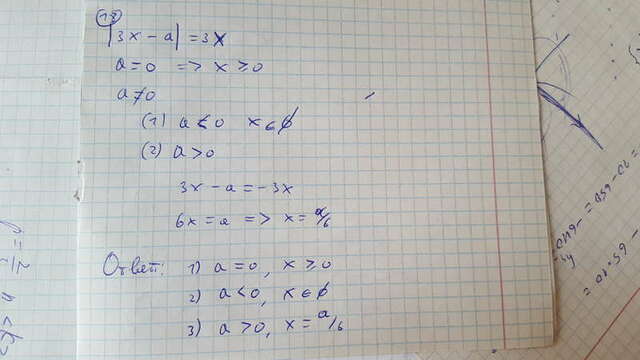 18
|3x - a| = 3x
a = 0 => x ≥ 0
a ≠ 0
(1) a < 0 x ∈ ∅
(2) a > 0
3x - a = -3x
6x = a => x = a/6
Ответ: 1) a = 0, x ≥ 0
2) a < 0, x ∈ ∅
3) a > 0, x = a/6